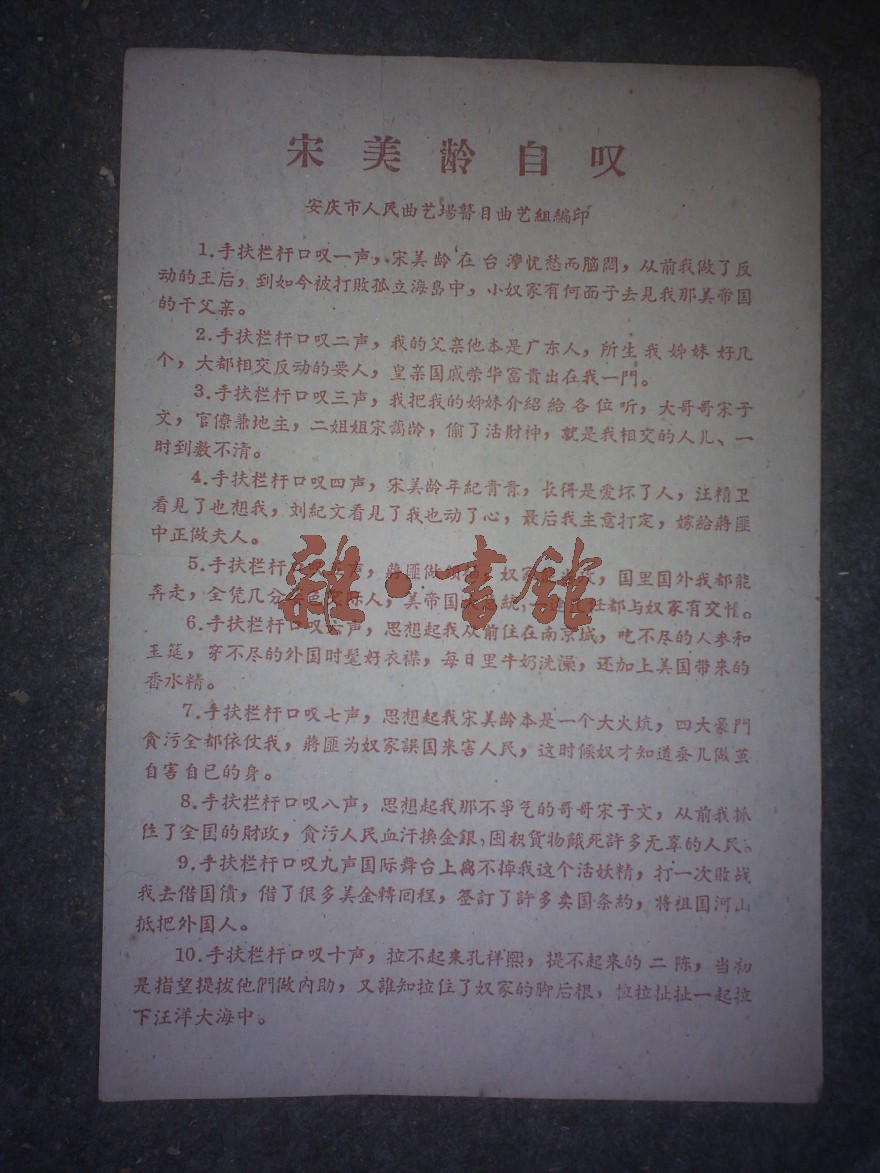 宋美龄自叹
安庆市人民曲艺場瞽目曲艺組編印
1.手扶栏杆口叹一声，宋美龄在台灣忧愁而脑悶，从前我做了反
动的王后，到如今被打敗孤立海岛中，小奴家有何面子去見我那美帝国
的干父亲。
2.手扶栏杆口叹二声，我的父亲他本是广东人，所生我姊妹好几
个，大都相交反动的要人，皇亲国戚荣华富貴出在我一門。
3.手扶栏杆口叹三声，我把我的姊妹介紹給各位听，大哥哥宋子
文，官僚兼地主，二姐姐宋蔼龄，偷了活財神，就是我相交的人儿、一
时到数不清。
4.手扶栏杆口叹四声，宋美龄年紀青青，长得是爱坏了人，汪精卫
看見了也想我，刘紀文看見了我也动了心，最后我主意打定，嫁給蔣匪
中正做夫人。
5.手扶栏杆口叹五声，蔣匪做領袖，奴家，国里国外我都能
奔走，全凭几分人，美帝国大总統，都与奴家有交情。
6.手扶栏杆口叹六声，思想起我从前住在南京城，吃不尽的人参和
玉筵，穿不尽的外国时髦好衣襟，每日里牛奶洗澡，还加上美国带来的
香水精。
7.手扶栏杆口叹七声，思想起我宋美龄本是一个大火炕，四大豪門
貪污全都依仗我，蔣匪为奴家誤国来害人民，这时候奴才知道蚕儿做茧
自害自已的身。
8.手扶栏杆口叹八声，思想起我那不爭气的哥哥宋子文，从前我抓
住了全国的財政，貪污人民血汗换金銀，囤积貨物餓死許多无辜的人民。
9.手扶栏杆口叹九声国际舞台上离不掉我这个活妖精，打一次敗战
我去借国債，借了很多美金轉回程，签訂了許多卖国条約，将祖国河山
抵把外国人。
10.手扶栏杆口叹十声，拉不起来孔祥熙，提不起来的二陈，当初
是指望提拔他們做内助，又誰知拉住了奴家的脚后根，拉拉扯扯一起拉
下汪洋大海中。
雜·書館